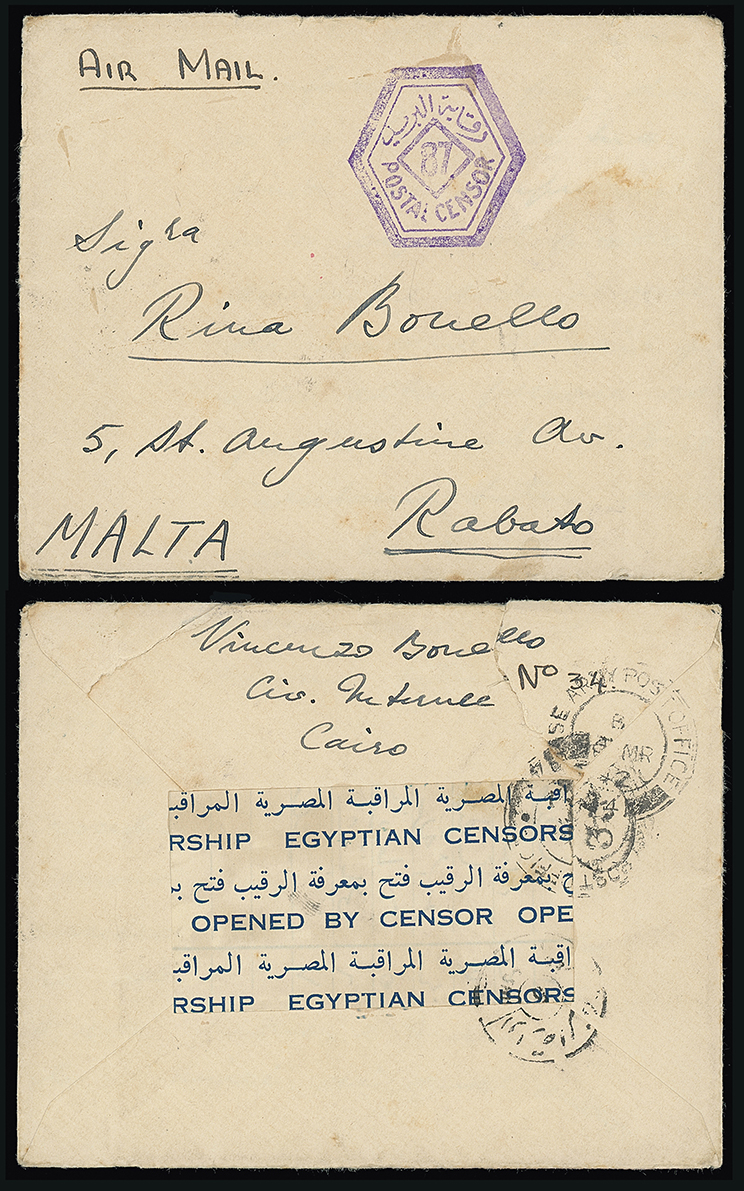 AIR MAIL.
رقابة البريد
87
POSTAL CENSOR
Sigra
Rina Bonello
5, St. Augustine Av.
Rabato
MALTA
Vincenzo Bonello
Civ. Internee
Cairo
No 34.
BASE ARMY POST OFFICE
MR
اقبة المصرية المراقبة المصرية المراقبـ
RSHIP EGYPTIAN CENSORS
ح بمعرفة الرقيب فتح بمعرفة الرقيب فتح بمـ
OPENED BY CENSOR OPE
اقبة المصرية المراقبة المصرية المراقبـ
RSHIP EGYPTIAN CENSORS